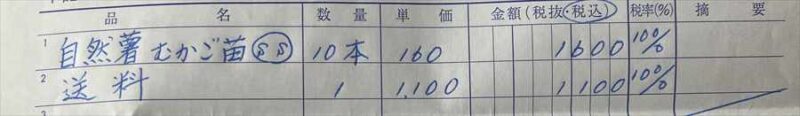 品名 数量 単価 金額(税抜・税込) 税率(%) 摘要
1 自然薯むかご苗 SS 10本 160 1600 10%
2 送料 1 1,100 1100 10%
3